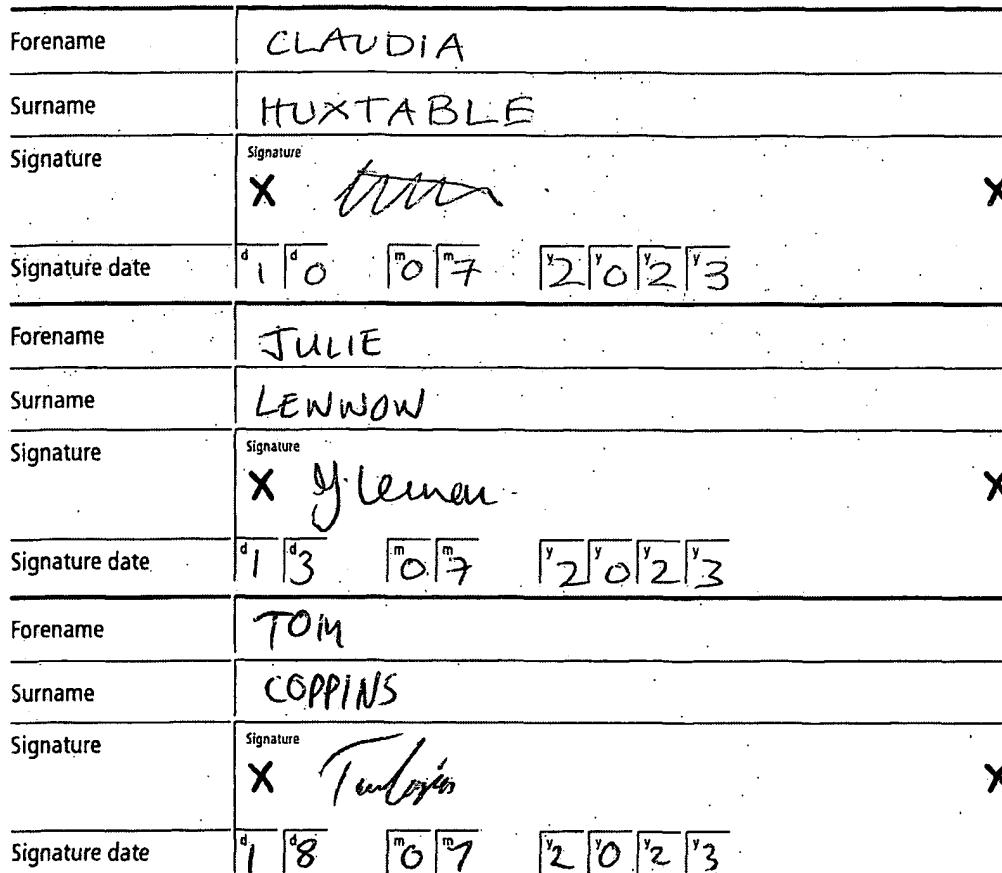 Forename CLAUDIA
Surname HUXTABLE
Signature Signature
X X
Signature date d1 d0 m0 m7 y2 y0 y2 y3
Forename JULIE
Surname LENNON
Signature Signature
X J. Lennon X
Signature date d1 d3 m0 m7 y2 y0 y2 y3
Forename TOM
Surname COPPINS
Signature Signature
X X
Signature date d1 d8 m0 m7 y2 y0 y2 y3